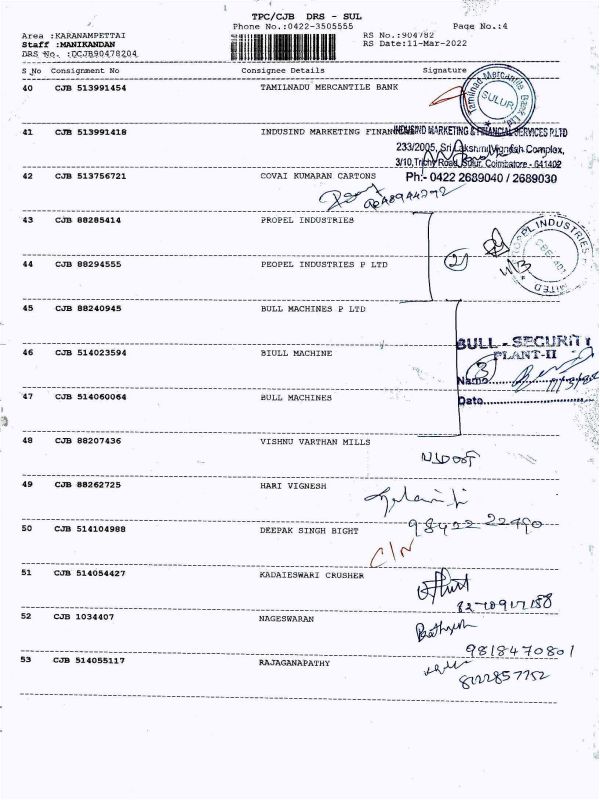 TPC/CJB DRS - SUL
Phone No.:0422-3505555
Page No.:4
Area :KARANAMPETTAI
RS No.:904782
Staff :MANIKANDAN
RS Date:11-Mar-2022
DRS No. :DCJB90478204
S No Consignment No Consignee Details Signature
40 CJB 513991454 TAMILNADU MERCANTILE BANK
Tamilnad Mercantile Bank Ltd.
SULUR
41 CJB 513991418 INDUSIND MARKETING FINANC
INDUSIND MARKETING & FINANCIAL SERVICES P.LTD
233/2005, Sri Lakshmi Complex,
3/10, Trichy Road, Sulur, Coimbatore - 641402
Ph:- 0422 2689040 / 2689030
42 CJB 513756721 COVAI KUMARAN CARTONS
43 CJB 88285414 PROPEL INDUSTRIES
PROPEL INDUSTRIES
LIMITED
44 CJB 88294555 PEOPEL INDUSTRIES P LTD
2
45 CJB 88240945 BULL MACHINES P LTD
BULL - SECURITY
PLANT-II
46 CJB 514023594 BIULL MACHINE
3
Name
47 CJB 514060064 BULL MACHINES
Date
48 CJB 88207436 VISHNU VARTHAN MILLS
49 CJB 88262725 HARI VIGNESH
98422 22490
50 CJB 514104988 DEEPAK SINGH BIGHT
C/N
51 CJB 514054427 KADAIESWARI CRUSHER
52 CJB 1034407 NAGESWARAN
9818470801
53 CJB 514055117 RAJAGANAPATHY